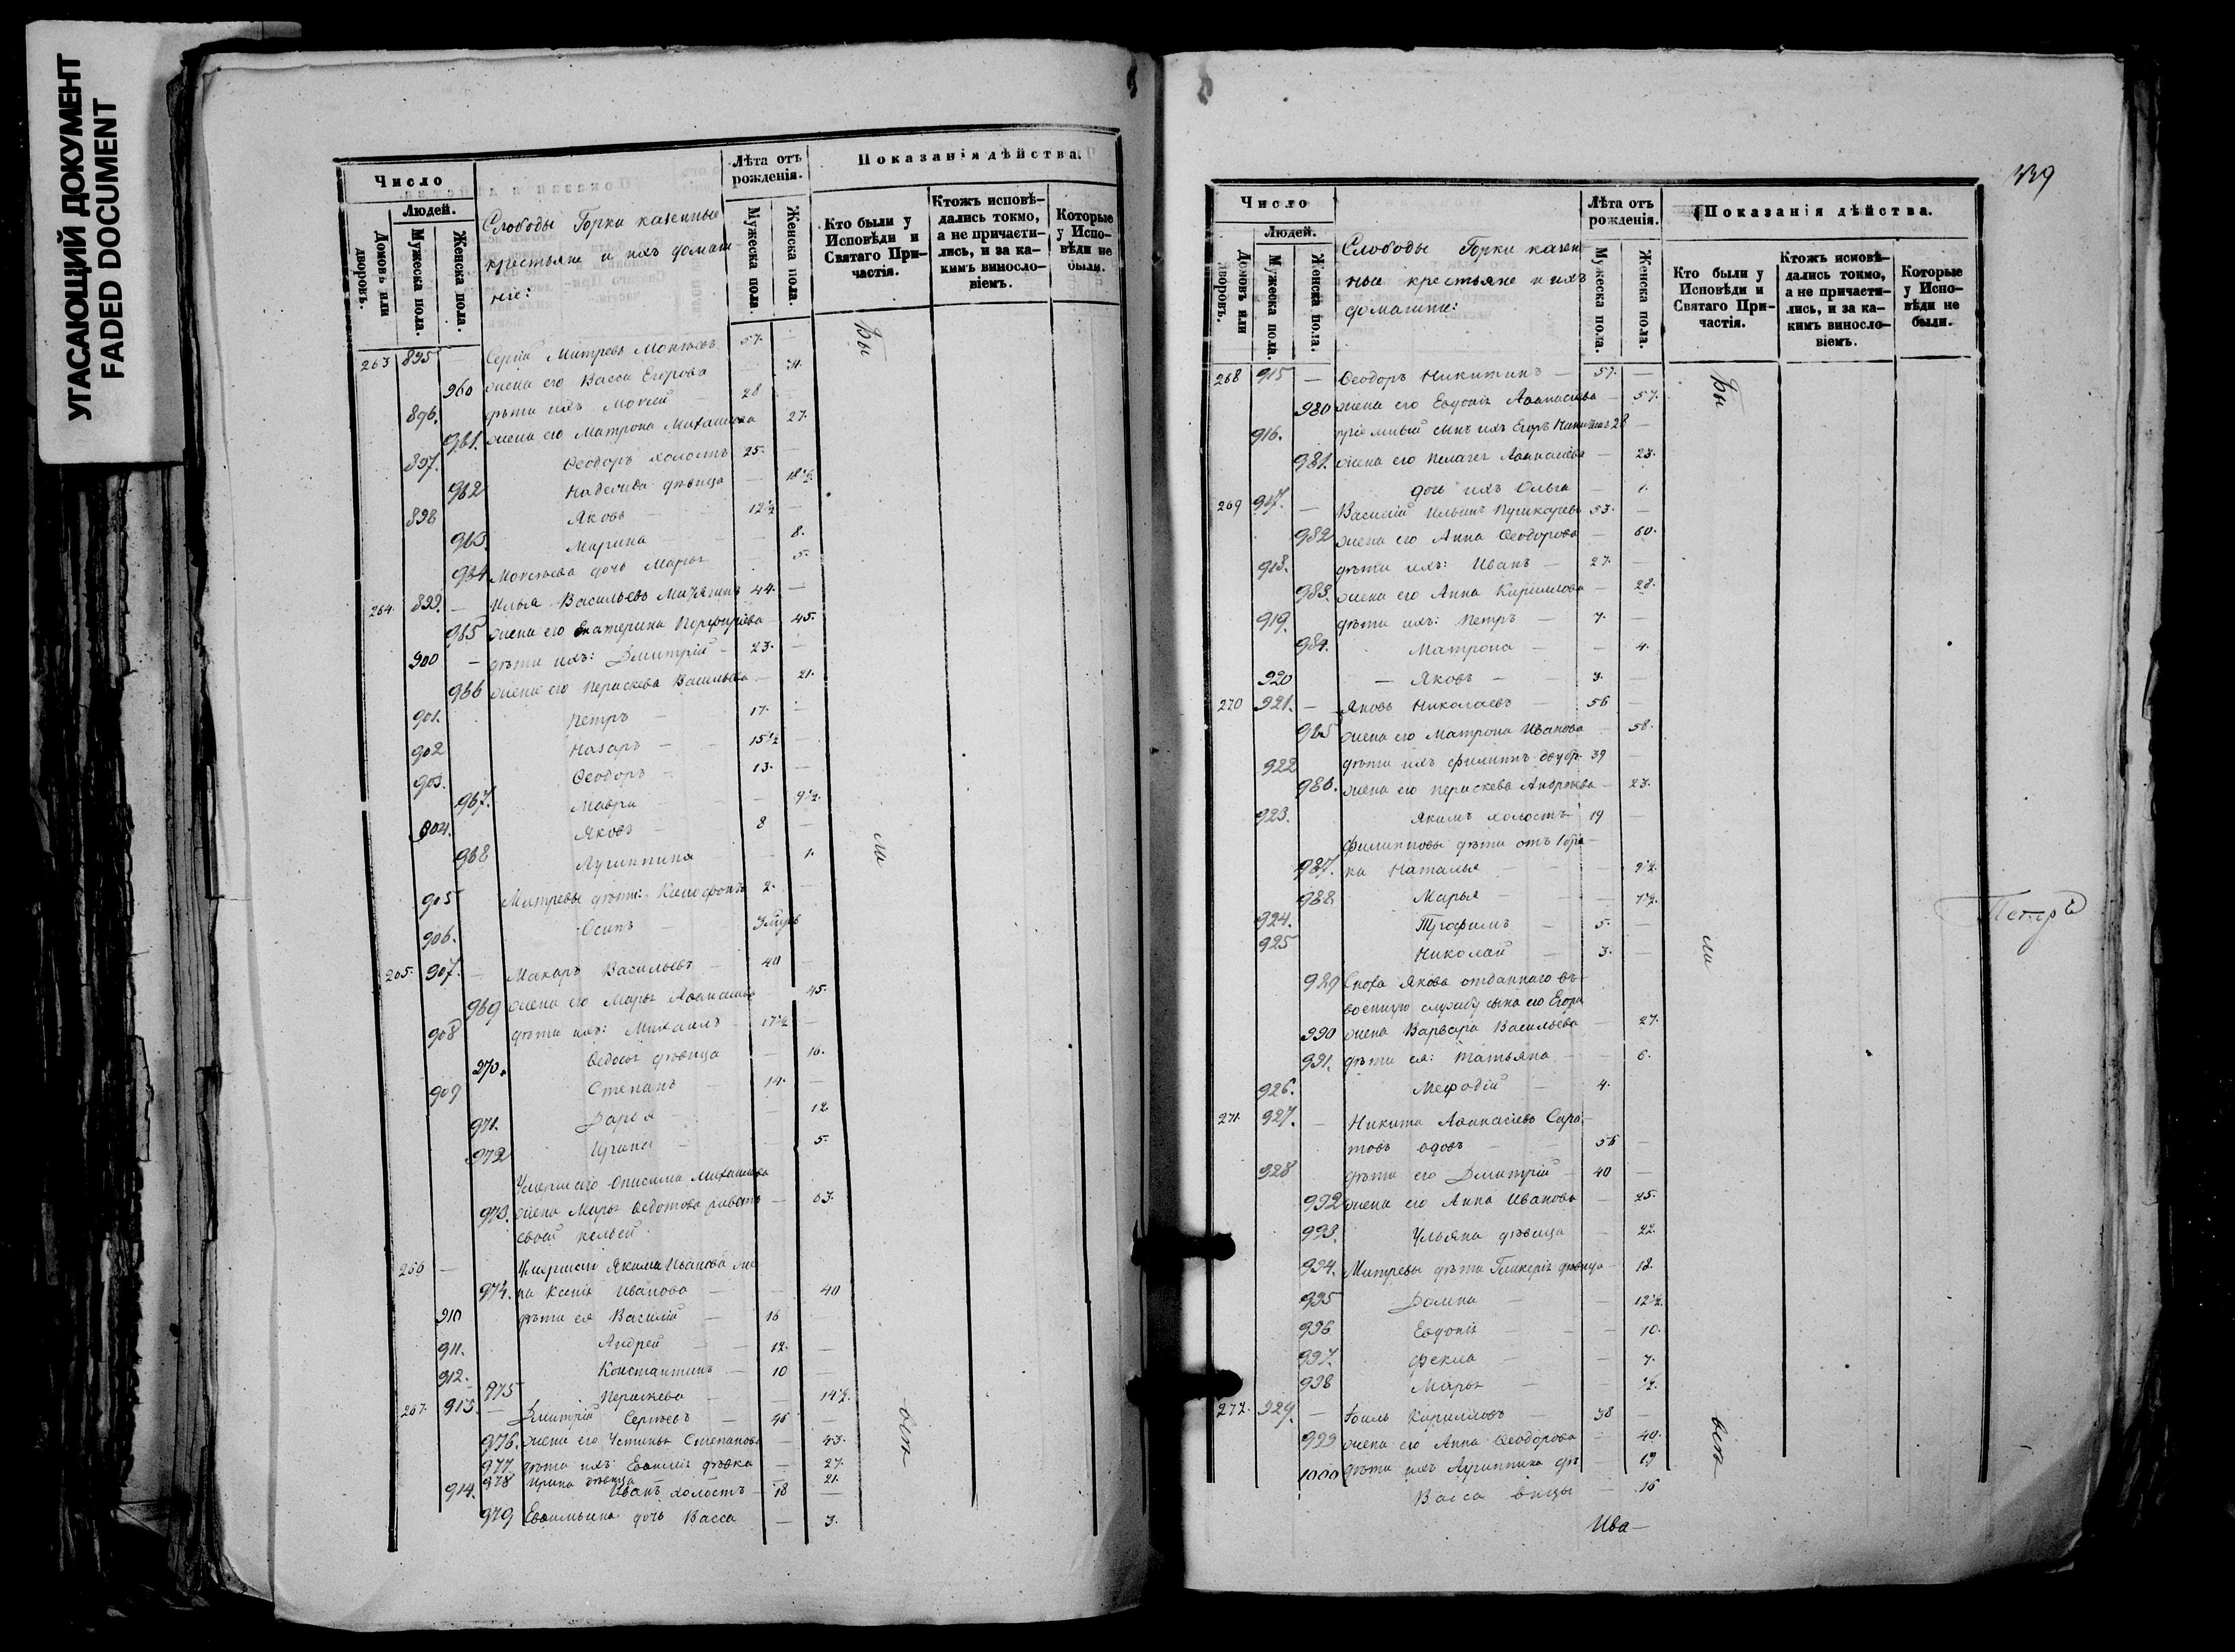 УГАСАЮЩИЙ ДОКУМЕНТ
FADED DOCUMENT
Число
Людей.
Домовъ или дворовъ.
Мужеска пола.
Женска пола.
Слободы Горки казенные
крестьяне и ихъ домаш-
ніе:
Лѣта отъ рожденія.
Мужеска пола
Женска пола.
Показанія дѣйства.
Кто были у Исповѣди и Святаго Причастія.
Ктожъ исповѣдались токмо, а не причастились, и за какимъ винословіемъ.
Которые у Исповѣди не были.
263 895 Сергій Митревъ 57. —
960 жена его Васса Егорова — 
896. дѣти ихъ Мокей 28
961. жена его Матрона Михайлова 27.
897. Ѳеодоръ холостъ 25. —
962 Надежда дѣвица — 18½
898 Яковъ — 12½ —
963. Марина — 8.
964 Мокѣева дочь Марья 5.
264. 899. — Илья Васильевъ 44. —
965 жена его Екатерина Порфирьева 45.
900 — дѣти ихъ: Дмитрій — 23. —
966 жена его Параскева Васильева — 21.
901. Петръ — 17. —
902 Назаръ — 15½ —
903. Ѳеодоръ — 13. —
967. Мавра — 9½.
904. Яковъ — 8 —
968 Агриппина — 1.
905 Митревы дѣти: 2. —
906. Осипъ —
265. 907. — Макаръ Васильевъ — 40 —
969 жена его Марья 45.
908 дѣти ихъ: Михаилъ — 17½ —
970. Ѳедосья дѣвица — 16.
909 Степанъ — 14. —
971. Дарья — 12
972 Ирина — 5.
Умершаго Онисима Михайлова
973. жена Марья Ѳедотова — 63.
своей кельей.
266 — Умершаго Якима Иванова же-
974. на Ксенія Иванова — 40
910 дѣти ея Василій — 16
911. Андрей — 12. —
912. Константинъ — 10 —
975 Параскева — 14½.
267. 913. — Дмитрій Сергѣевъ — 46 —
976. жена его Устинья Степанова — 43.
977. дѣти ихъ: Евѳимія дѣвка — 27.
978 Ирина дѣвица — 21.
914. Иванъ холостъ — 18 —
979 Евѳимьина дочь Васса — 3.
Бы
ли
всѣ
439
Число
Людей.
Домовъ или дворовъ.
Мужеска пола.
Женска пола.
Слободы Горки казен-
ные крестьяне и ихъ
домашніе:
Лѣта отъ рожденія.
Мужеска пола.
Женска пола.
Показанія дѣйства.
Кто были у Исповѣди и Святаго Причастія.
Ктожъ исповѣдались токмо, а не причастились, и за какимъ винословіемъ.
Которые у Исповѣди не были.
268 915 — Ѳеодоръ Никитинъ — 57. —
980 жена его Евдокія Аѳанасьева — 57.
916. пріемный сынъ ихъ Егоръ Никитинъ 28 —
981. жена его Пелагея Аѳанасьева — 23.
дочь ихъ Ольга — 1.
269 917. — Василій Ильинъ 53. —
982 жена его Анна Ѳеодорова — 60.
918. дѣти ихъ: Иванъ — 27. —
983. жена его Анна Кириллова — 28.
919. дѣти ихъ: Петръ — 7. —
984. Матрона — — 4.
920 — Яковъ — 3. —
270 921. — Яковъ Николаевъ — 56 —
985 жена его Матрона Иванова 58.
922 дѣти ихъ Филиппъ 39 —
986. жена его Параскева Андреева — 23.
923. Якимъ холостъ 19 —
Филипповы дѣти отъ 1 бра-
987. ка Наталья — 9½.
988 Марья — — 7½.
924. Трофимъ — 5. —
925 Николай — 3. —
989 Сноха Якова отданнаго въ
военную службу сына его Егора
990 жена Варвара Васильева — 27.
991. дѣти ея: Татьяна — — 6.
926. Меѳодій — 4.
271. 927. — Никита Аѳанасьевъ Сара-
товъ вдовъ — 56 —
928 дѣти его Дмитрій — 40 —
992 жена его Анна Иванова — 25.
993. Ульяна дѣвица — 22.
994. Митревы дѣти Гликерія дѣвица — 18.
995 Домна — — 12½.
996 Евдокія — — 10.
997. Фекла — — 7.
998 Марья — ½.
272. 929. — Кирилловъ — 38 —
999 жена его Анна Ѳеодорова — 40.
1000 дѣти ихъ Агриппина дѣ- — 19
Васса вицы — 16
Ива—
Бы
ли
всѣ